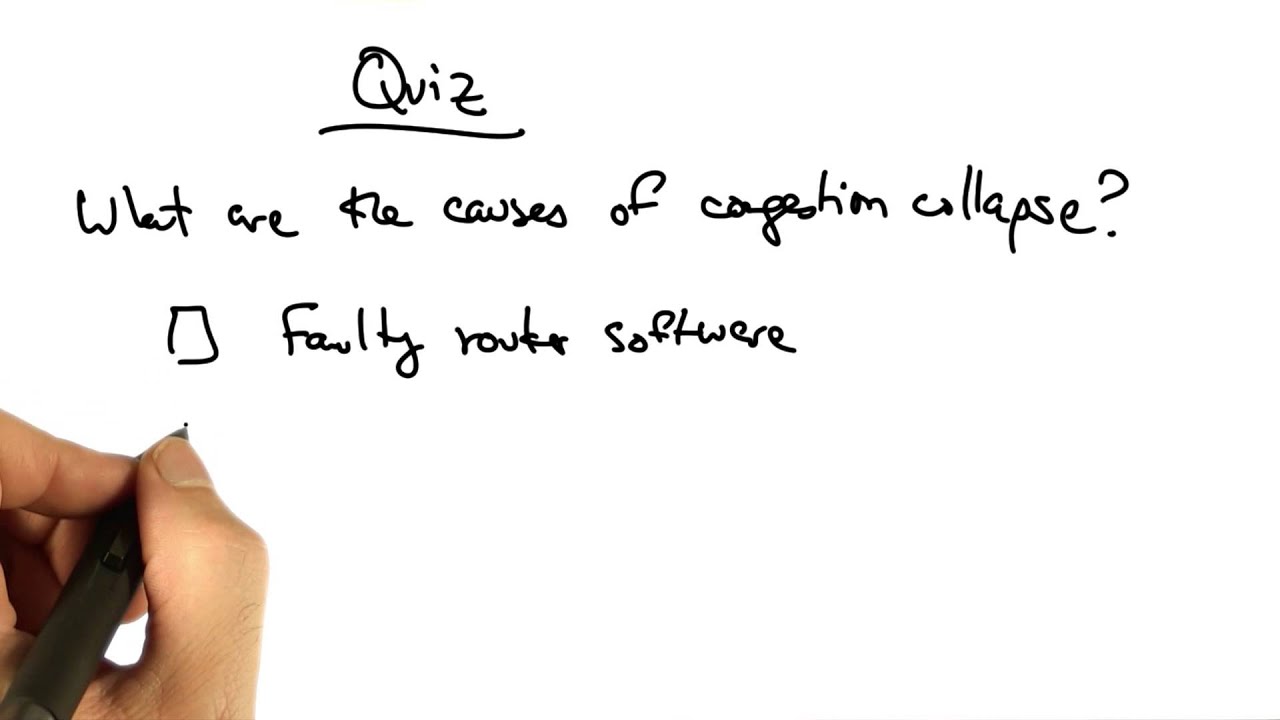 Quiz
What are the causes of congestion collapse?
Faulty router software